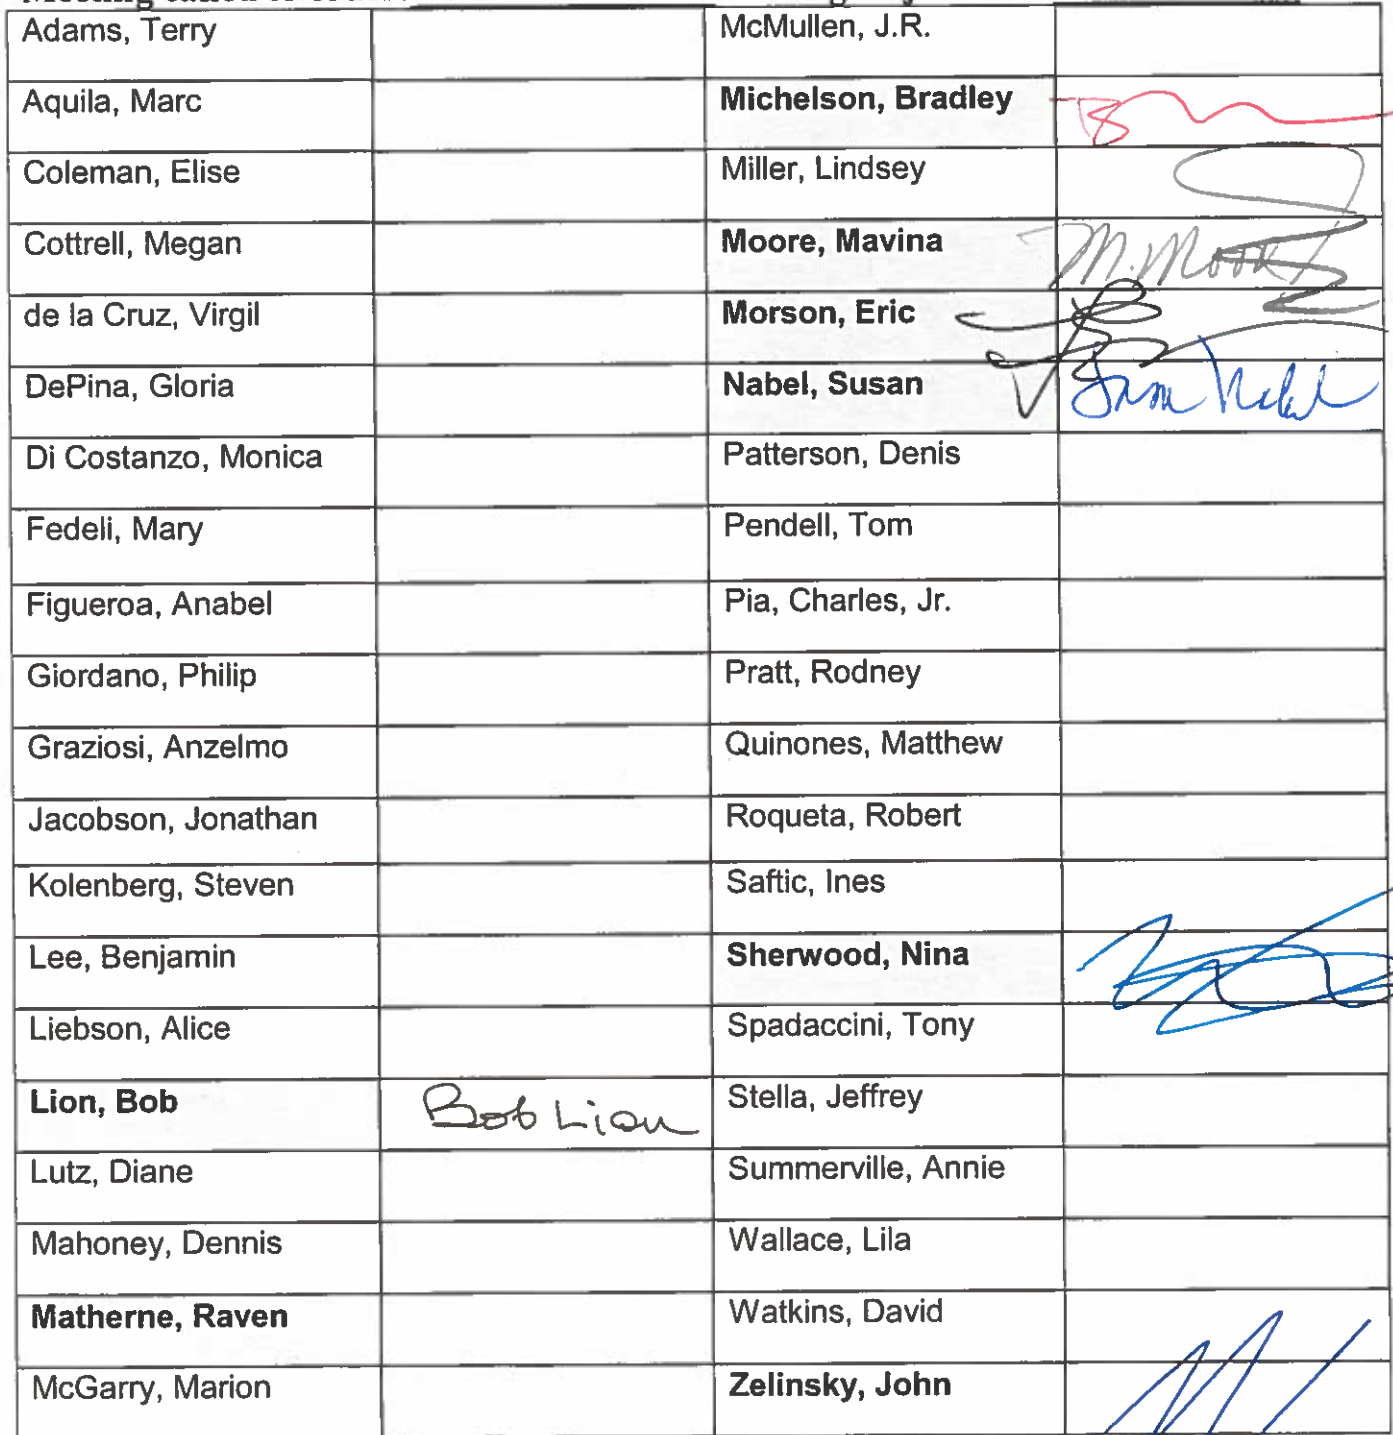 Adams, Terry McMullen, J.R.
Aquila, Marc Michelson, Bradley
Coleman, Elise Miller, Lindsey
Cottrell, Megan Moore, Mavina M. Moore
de la Cruz, Virgil Morson, Eric
DePina, Gloria Nabel, Susan Nabel
Di Costanzo, Monica Patterson, Denis
Fedeli, Mary Pendell, Tom
Figueroa, Anabel Pia, Charles, Jr.
Giordano, Philip Pratt, Rodney
Graziosi, Anzelmo Quinones, Matthew
Jacobson, Jonathan Roqueta, Robert
Kolenberg, Steven Saftic, Ines
Lee, Benjamin Sherwood, Nina
Liebson, Alice Spadaccini, Tony
Lion, Bob Bob Lion Stella, Jeffrey
Lutz, Diane Summerville, Annie
Mahoney, Dennis Wallace, Lila
Matherne, Raven Watkins, David
McGarry, Marion Zelinsky, John